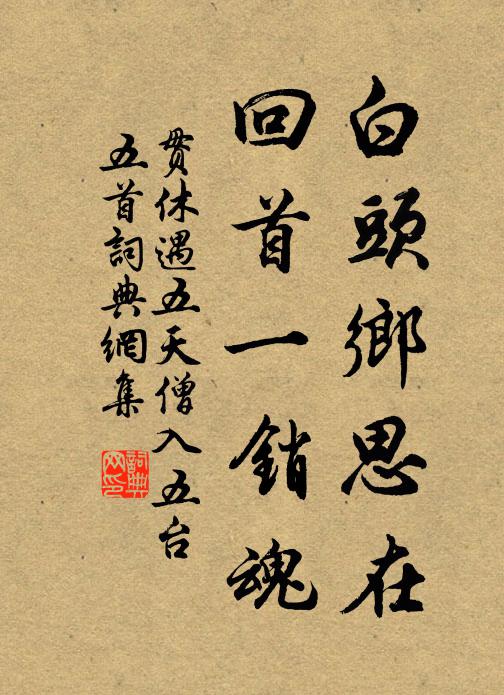 白頭鄉思在
回首一銷魂
貫休遇五天僧入五台
五首詞典網集
詞典
网印